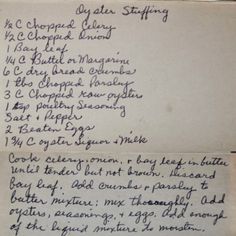 Oyster Stuffing
1/2 C Chopped Celery
1/2 C Chopped Onion
1 Bay leaf
1/4 C Butter or Margarine
6 C dry bread crumbs
1 tbs Chopped Parsley
3 C Chopped raw oysters
1 tsp poultry Seasoning
Salt + Pepper
2 Beaten Eggs
1 3/4 C oyster liquor + Milk
Cook celery, onion, + bay leaf in butter
until tender but not brown. Discard
bay leaf. Add crumbs + parsley to
butter mixture; mix thoroughly. Add
oysters, seasonings, + eggs. Add enough
of the liquid mixture to moisten.